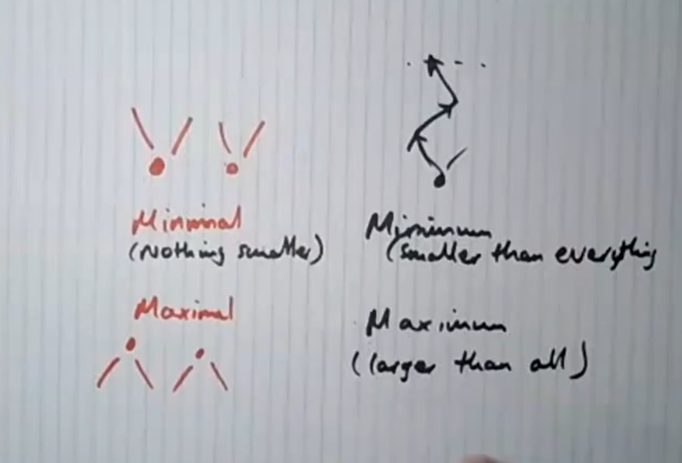 Minimal
(Nothing smaller)
Minimum
(smaller than everything
Maximal
Maximum
(larger than all)